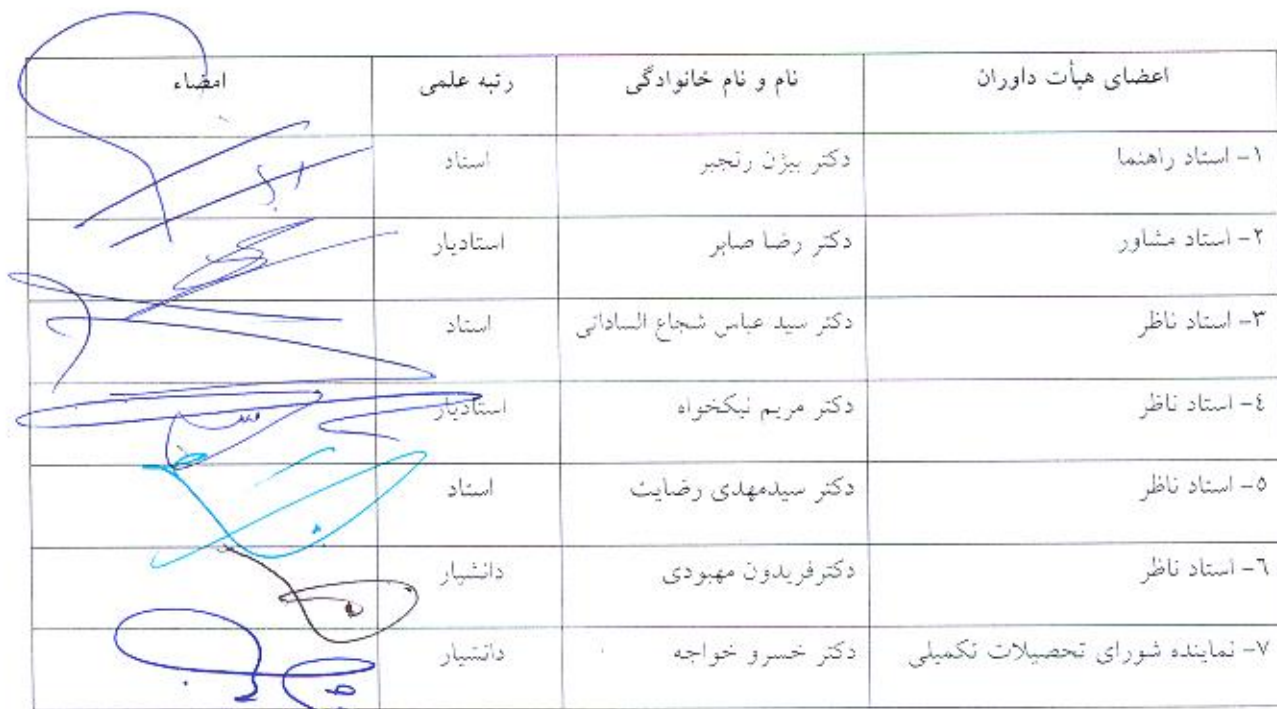 اعضای هیأت داوران نام و نام خانوادگی رتبه علمی امضاء
۱- استاد راهنما دکتر بیژن رنجبر استاد
۲- استاد مشاور دکتر رضا صابر استادیار
۳- استاد ناظر دکتر سید عباس شجاع الساداتی استاد
٤- استاد ناظر دکتر مریم نیکخواه استادیار
٥- استاد ناظر دکتر سیدمهدی رضایت استاد
٦- استاد ناظر دکترفریدون مهبودی دانشیار
۷- نماینده شورای تحصیلات تکمیلی دکتر خسرو خواجه دانشیار